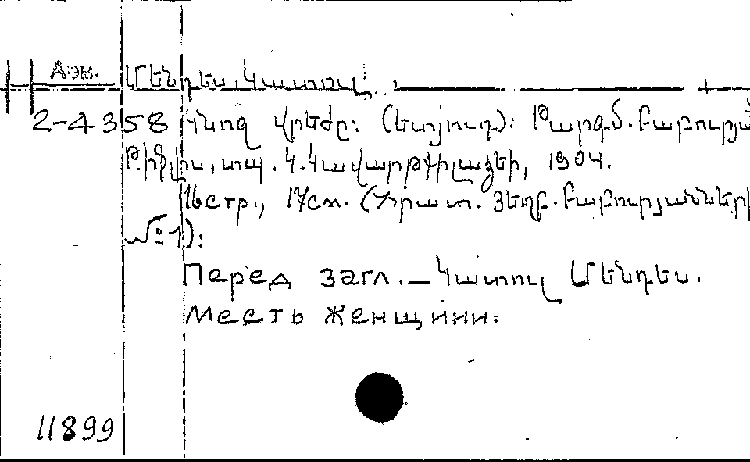 Арм. Մենդես, Կատուլ
2-4358 Կնոջ վրեժը: (Նովյուղ): Թարգմ. Բաբուրյան
Թիֆլիս, տպ. Կ. Կավարթկիլաձեի, 1904.
16стр., 17см. (Հրատ. Յեղբ. Բաբուրյանների
№ 1):
Перед загл. — Կատուլ Մենդես.
Месть женщини.
11899